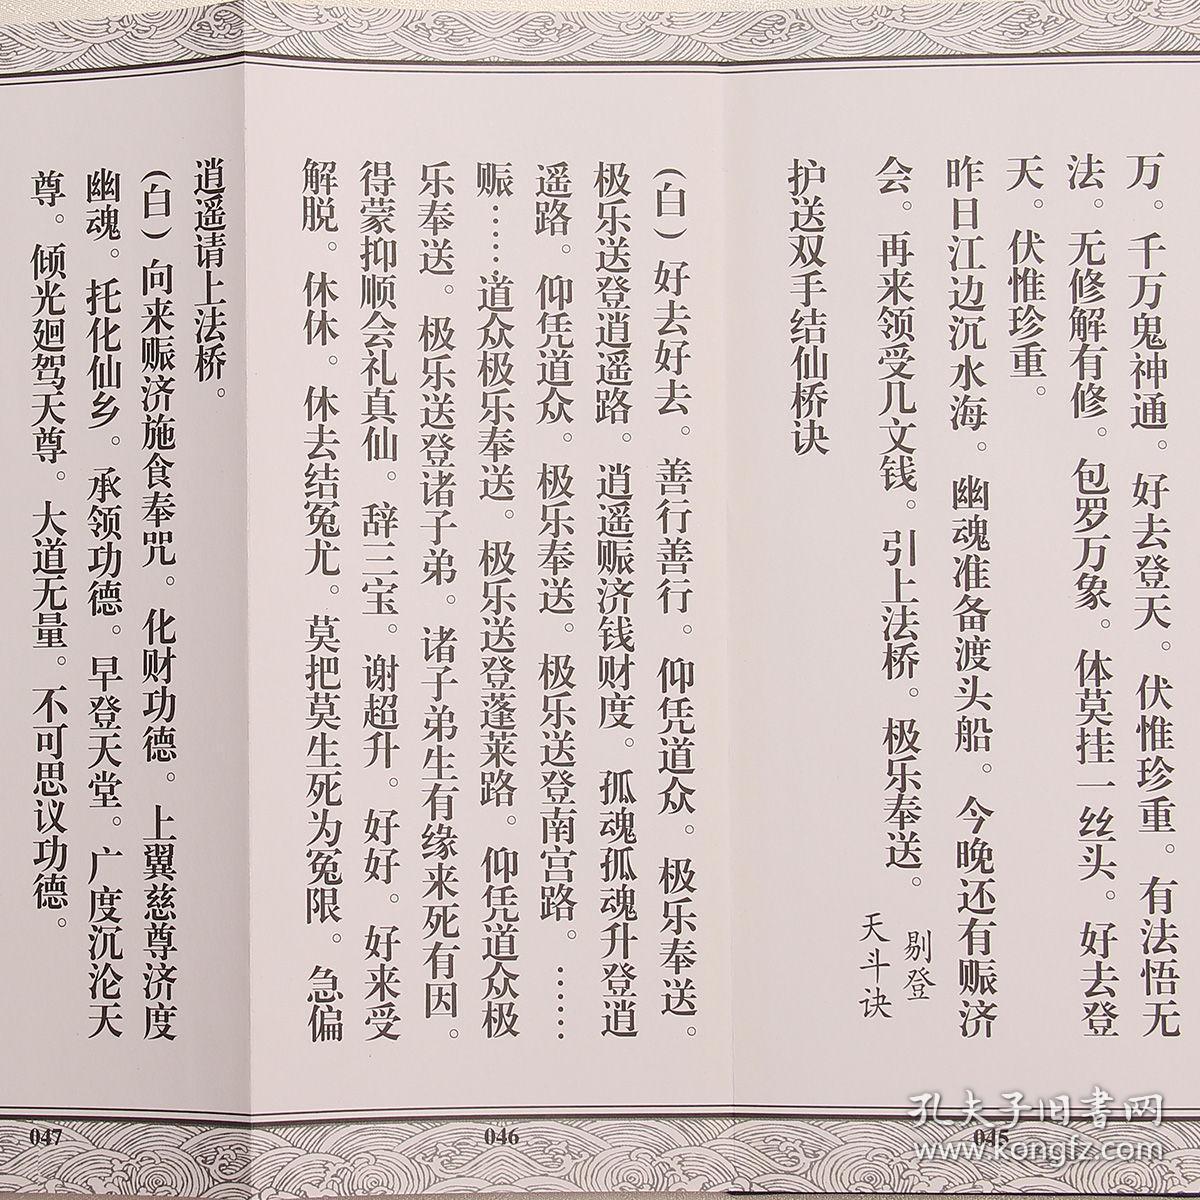 万。千万鬼神通。好去登天。伏惟珍重。有法悟无
法。无修解有修。包罗万象。体莫挂一丝头。好去登
天。伏惟珍重。
昨日江边沉水海。幽魂准备渡头船。今晚还有赈济
会。再来领受几文钱。引上法桥。极乐奉送。
剔登
天斗诀
护送双手结仙桥诀
(白)好去好去。善行善行。仰凭道众。极乐奉送。
极乐送登逍遥路。逍遥赈济钱财度。孤魂孤魂升登逍
遥路。仰凭道众。极乐奉送。极乐送登南宫路。……
赈……道众极乐奉送。极乐送登蓬莱路。仰凭道众极
乐奉送。极乐送登诸子弟。诸子弟生有缘来死有因。
得蒙抑顺会礼真仙。辞三宝。谢超升。好好。好来受
解脱。休休。休去结冤尤。莫把莫生死为冤限。急偏
逍遥请上法桥。
(白)向来赈济施食奉咒。化财功德。上翼慈尊济度
幽魂。托化仙乡。承领功德。早登天堂。广度沉沦天
尊。倾光廻驾天尊。大道无量。不可思议功德。
045
046
047
孔夫子旧书网
www.kongfz.com